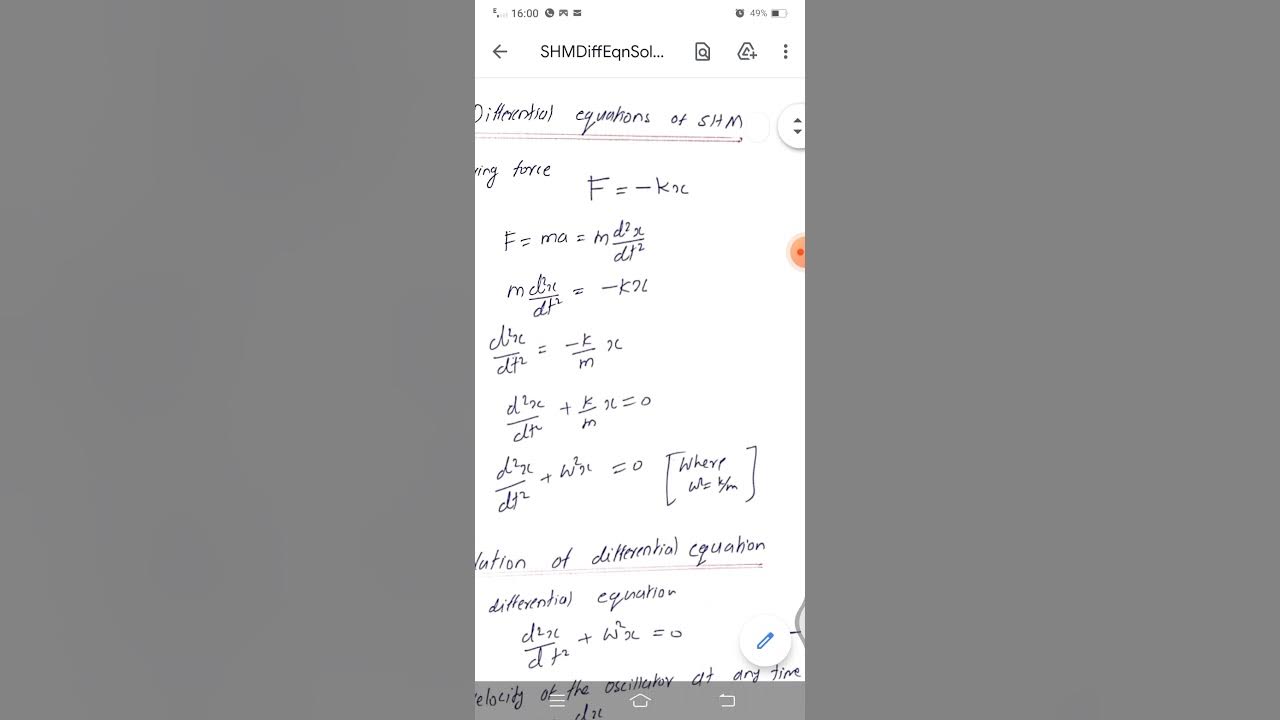 16:00 49%
SHMDiffEqnSol...
Differential equations of SHM
ring force F = -kx
F = ma = m d²x/dt²
m d²x/dt² = -kx
d²x/dt² = -k/m x
d²x/dt² + k/m x = 0
d²x/dt² + ω²x = 0 [Where ω² = k/m]
lution of differential equation
differential equation
d²x/dt² + ω²x = 0
elocity of the oscillator at any time
dx